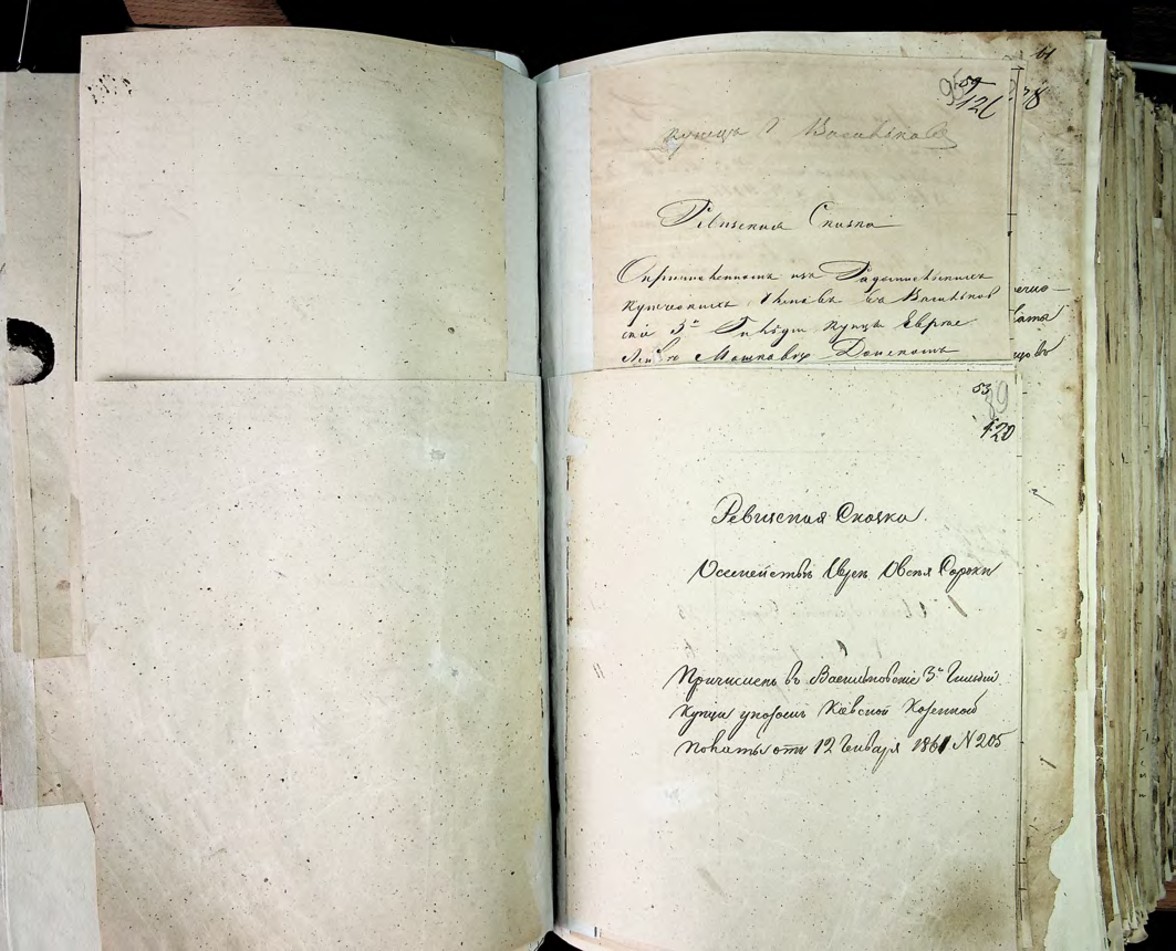 61
95
59
126
78
купец г Васильков
Ревизская Сказка
О причисленномъ изъ Радомысльскихъ
купеческихъ сыновъ въ Васильков
скіе 3й Гильдіи купцы Евреѣ
Мошковѣ Донскомъ
53
89
120
Ревизская Сказка
О семействѣ Еврея Овсея Сороки
Причисленъ въ Васильковскіе 3й Гильдіи
купцы указомъ Кіевской Казенной
Палаты отъ 12 Генваря 1861 N 205